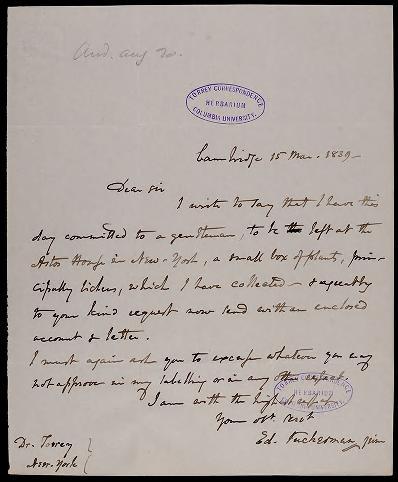 And. aug 20.
TORREY CORRESPONDENCE
HERBARIUM
COLUMBIA UNIVERSITY.
Cambridge 15 Mar. 1839 –
Dear sir
I wish to say that I have this
day committed to a gentleman, to be left at the
Astor House in New-York, a small box of plants, prin-
cipally lichens, which I have collected – & agreeably
to your kind request now send with an enclosed
account & letter.
I must again ask you to excuse whatever you may
not approve in my labelling or in any other respect.
I am with the highest
TORREY CORRESPONDENCE
HERBARIUM
COLUMBIA UNIVERSITY.
Your obt. servt
Ed. Tuckerman, jun
Dr. Torrey
New-York